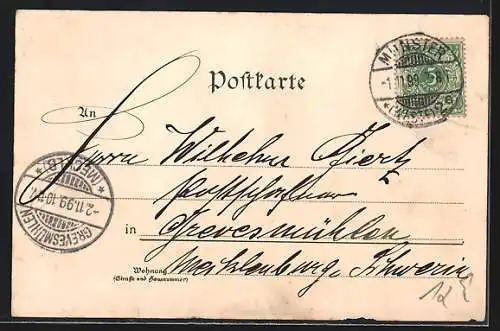 MÜNSTER
-1.11.99
(WESTF.)
5
Postkarte
An
Herrn Wilhelm Biertz
in Grevesmühlen
Wohnung
(Straße und Hausnummer)
Mecklenburg, Schwerin
GREVESMÜHLEN
-2.11.99.10-11V.
(MECKLB)
12